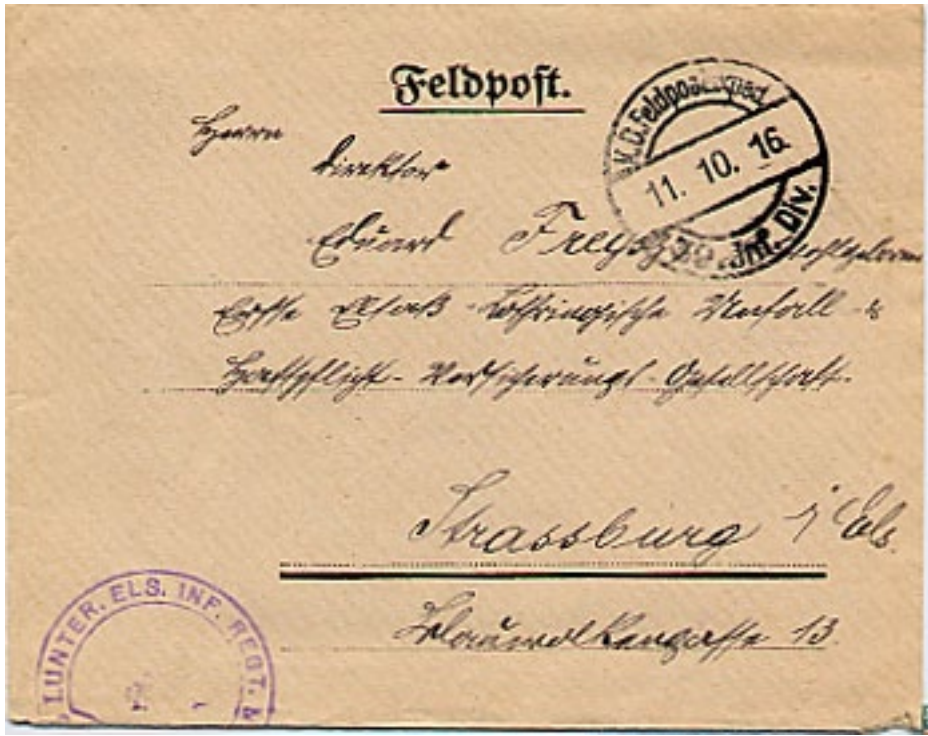 Feldpost.
K.D. Feldpostexped.
11. 10. 16.
39. Inf. Div.
Herrn
Direktor
Eduard
Erste Elsaß-Lothringische Unfall- &
Haftpflicht-Versicherungs-Gesellschaft.
Strassburg i/Els.
Blauwolkengasse 13
1. UNTER. ELS. INF. REGT.